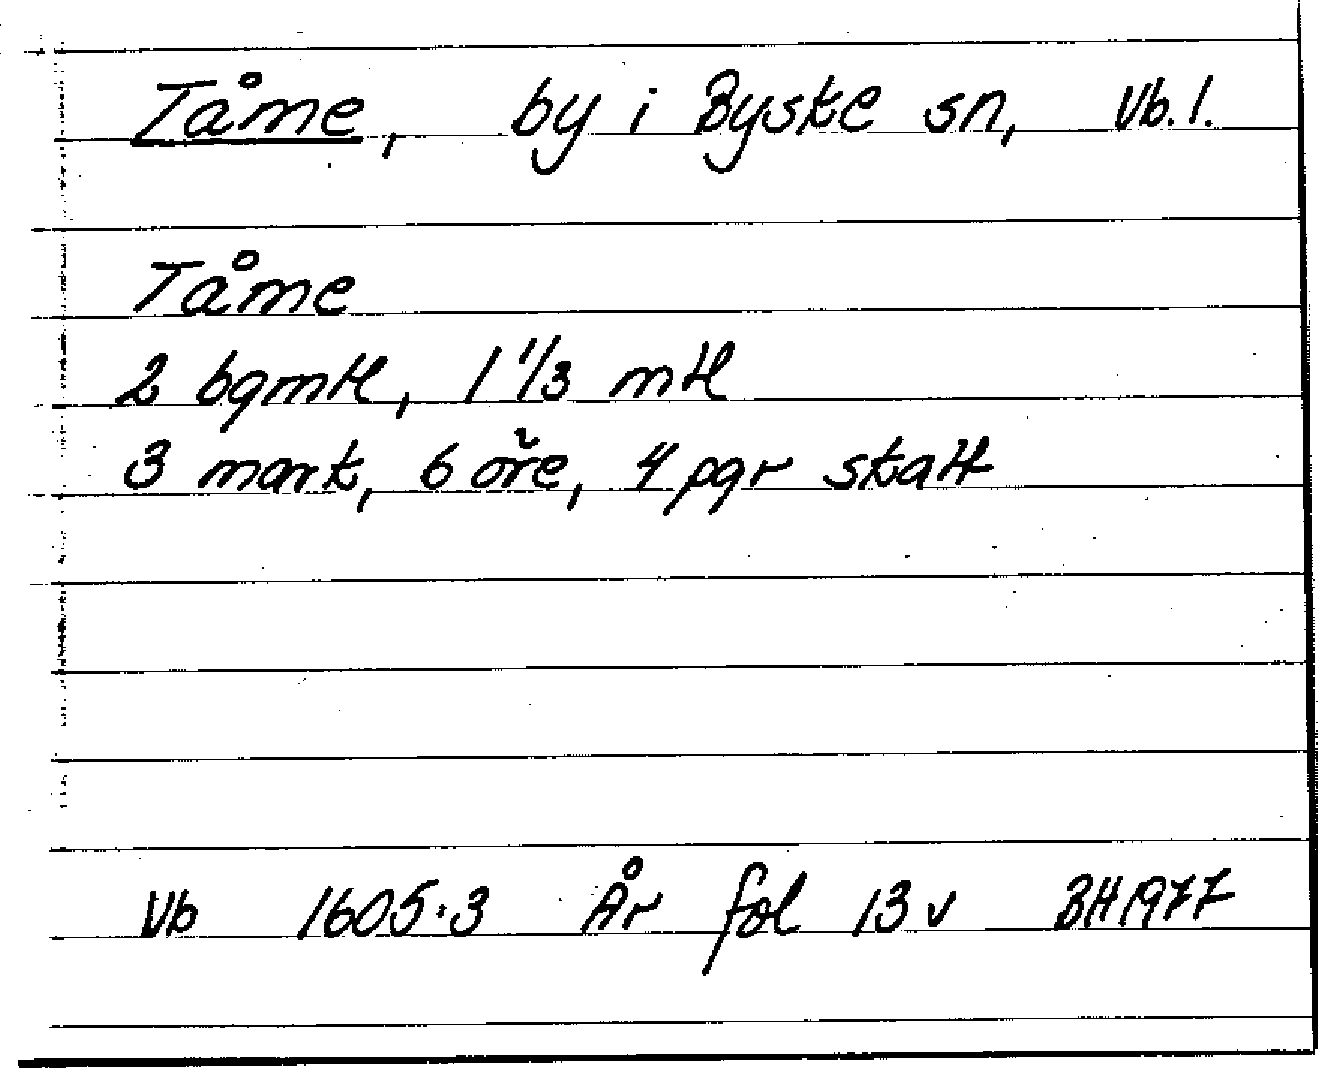 Tåme, by i Byske sn, Vb. l.
Tåme
2 bgmtl, 1 1/3 mtl
3 mark, 6 öre, 4 pgr skatt
Vb 1605:3 År fol 13 v BH 1977